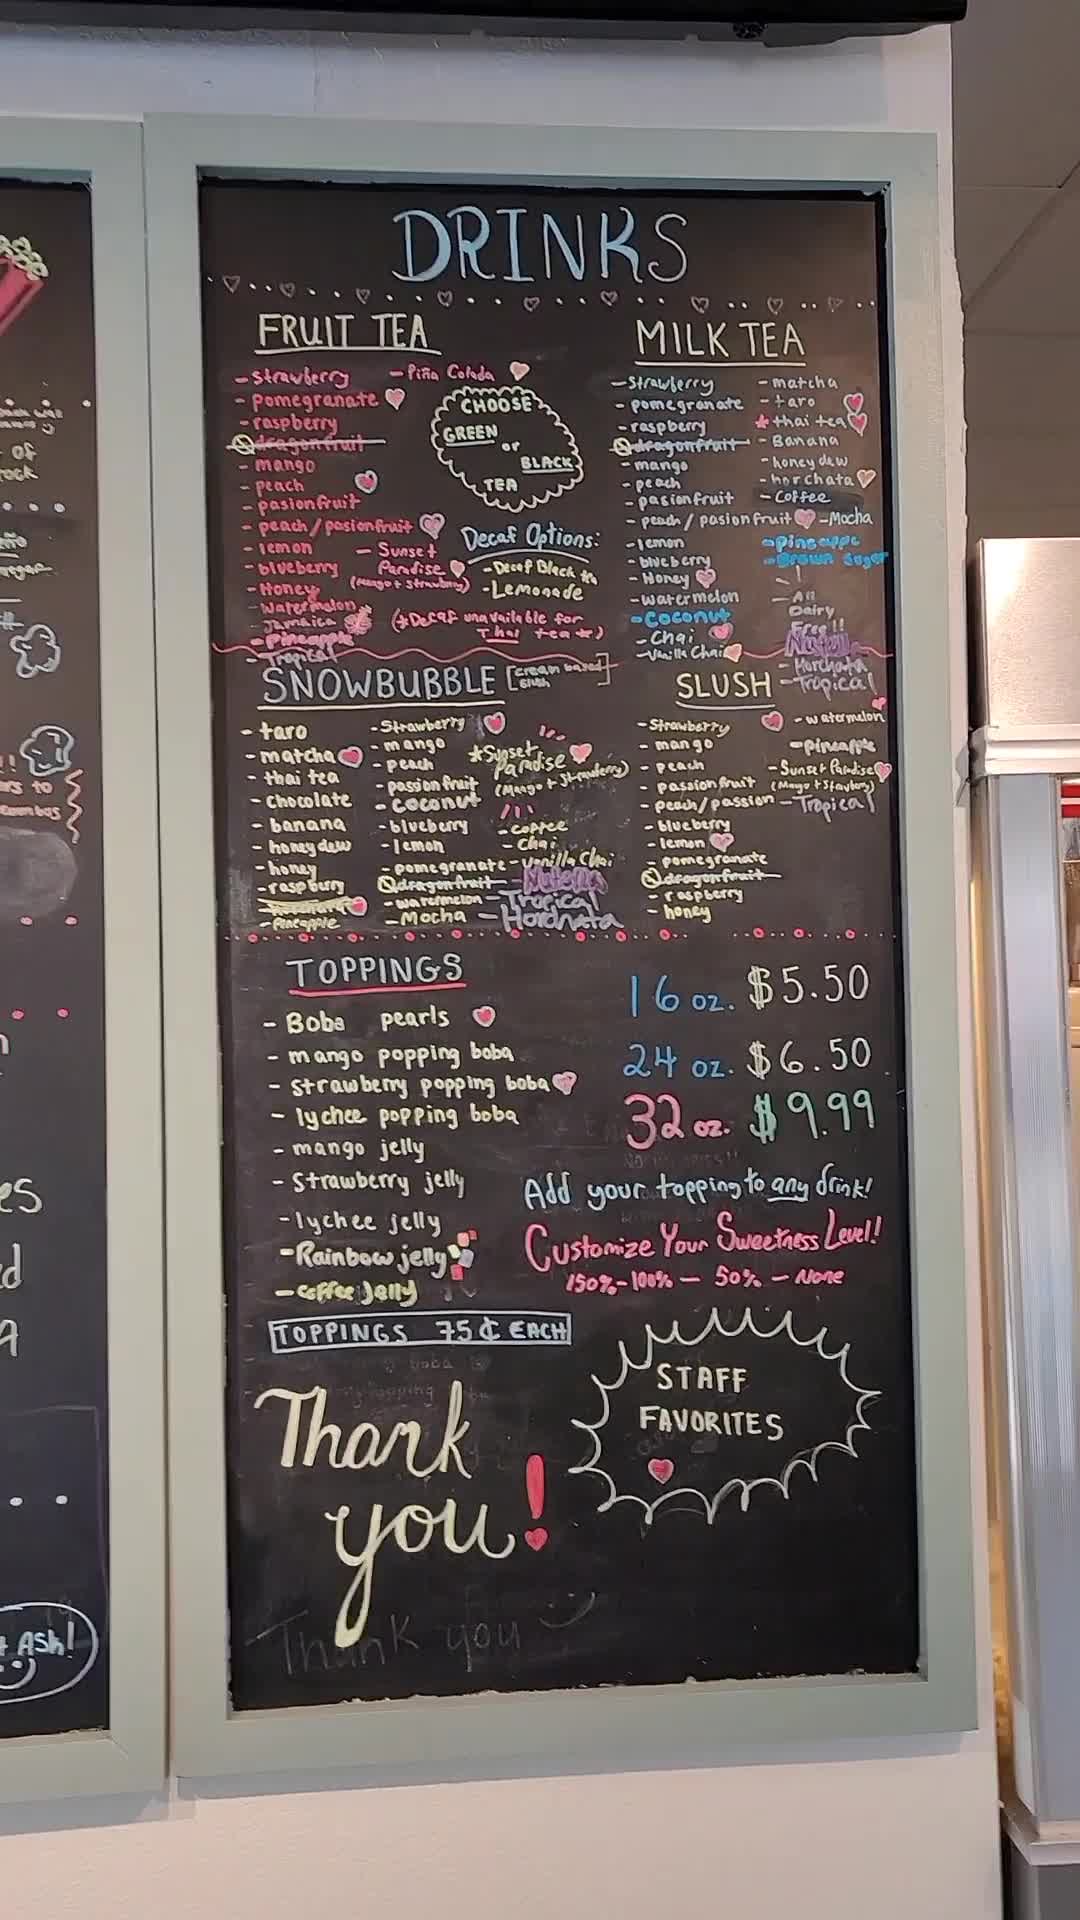 DRINKS
FRUIT TEA
- strawberry
- pomegranate
- raspberry
- dragonfruit
- mango
- peach
- pasionfruit
- peach/pasionfruit
- lemon
- blueberry
- Honey
- watermelon
Jamaica
- Pineapple
- Tropical
- Piña Colada
- Sunset
Paradise
(Mango + Strawberry)
CHOOSE
GREEN
or
BLACK
TEA
Decaf Options:
- Decaf Black tea
- Lemonade
(*Decaf unavailable for
Thai tea*)
MILK TEA
- Strawberry
- pomegranate
- raspberry
- dragonfruit
- mango
- peach
- pasionfruit
- peach/pasionfruit
- lemon
- blueberry
- Honey
- watermelon
- Coconut
- Chai
- Vanilla Chai
- matcha
- taro
* thai tea
- Banana
- honeydew
- horchata
- Coffee
- Mocha
- Pineapple
- Brown Sugar
- All
Dairy
Free!!
Nutella
- Horchata
- Tropical
SNOWBUBBLE [cream based
slush]
- taro
- matcha
- thai tea
- chocolate
- banana
- honeydew
- honey
- raspberry
- Pineapple
- Strawberry
- mango
- peach
- passionfruit
- coconut
- blueberry
- lemon
- pomegranate
- dragonfruit
- watermelon
- Mocha
*Sunset
Paradise
(Mango + Strawberry)
- coffee
- Chai
- Vanilla Chai
- Nutella
- Tropical
- Horchata
SLUSH
- Strawberry
- mango
- peach
- passionfruit
- peach/passion
- blueberry
- lemon
- pomegranate
- dragonfruit
- raspberry
- honey
- watermelon
- Pineapple
- Sunset Paradise
(Mango + Strawberry)
- Tropical
TOPPINGS
- Boba pearls
- mango popping boba
- strawberry popping boba
- lychee popping boba
- mango jelly
- Strawberry jelly
- lychee jelly
- Rainbow jelly
- Coffee Jelly
TOPPINGS 75¢ EACH
16 oz. $5.50
24 oz. $6.50
32 oz. $9.99
Add your topping to any drink!
Customize Your Sweetness Level!
150% - 100% - 50% - None
STAFF
FAVORITES
Thank
you!
Thank you
of
es
A
Ash!